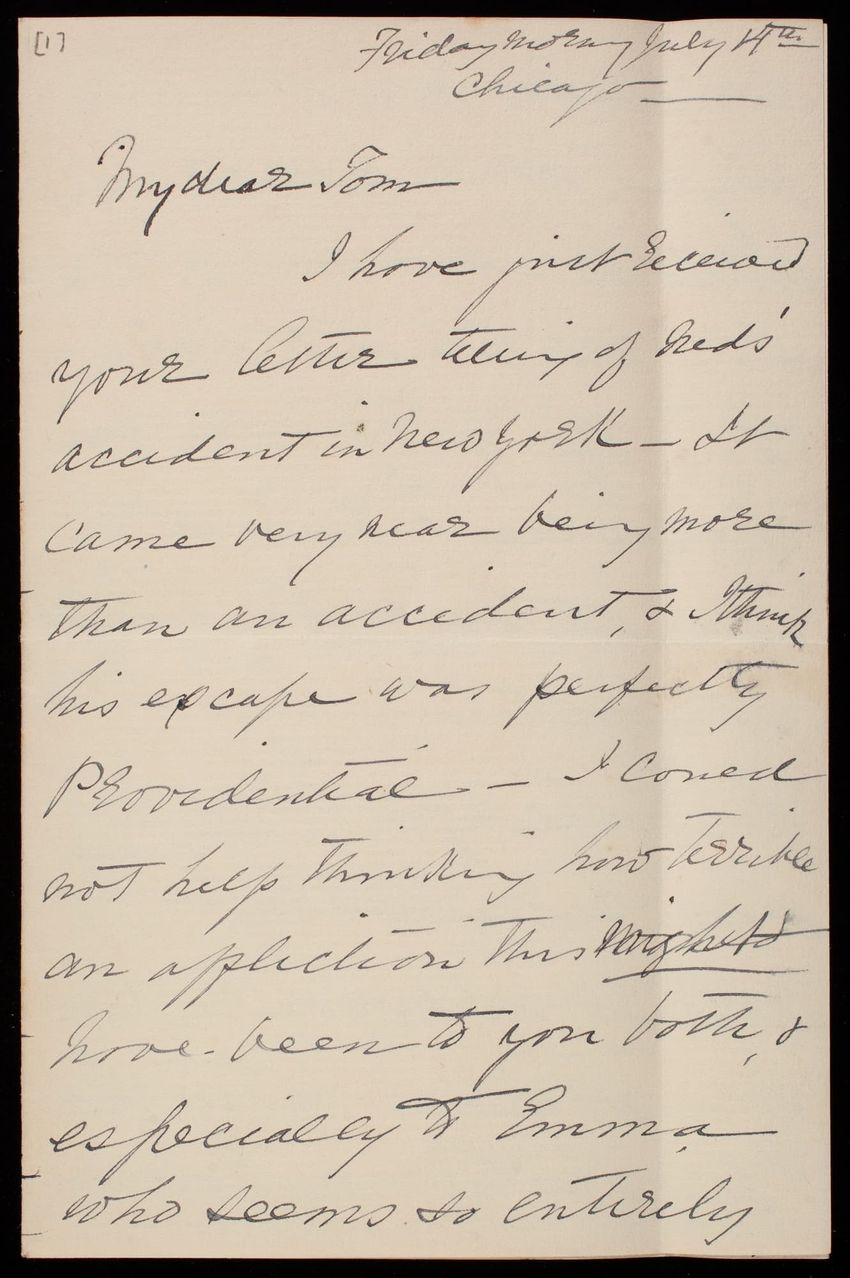 [1]
Friday morning July 14th
Chicago
My dear Tom
I have just received
your letter telling of Neds'
accident in New York - It
came very near being more
than an accident, & I think
his escape was perfectly
Providential - I could
not help thinking how terrible
an affliction this might
have been to you both, &
especially to Emma
who seems so entirely